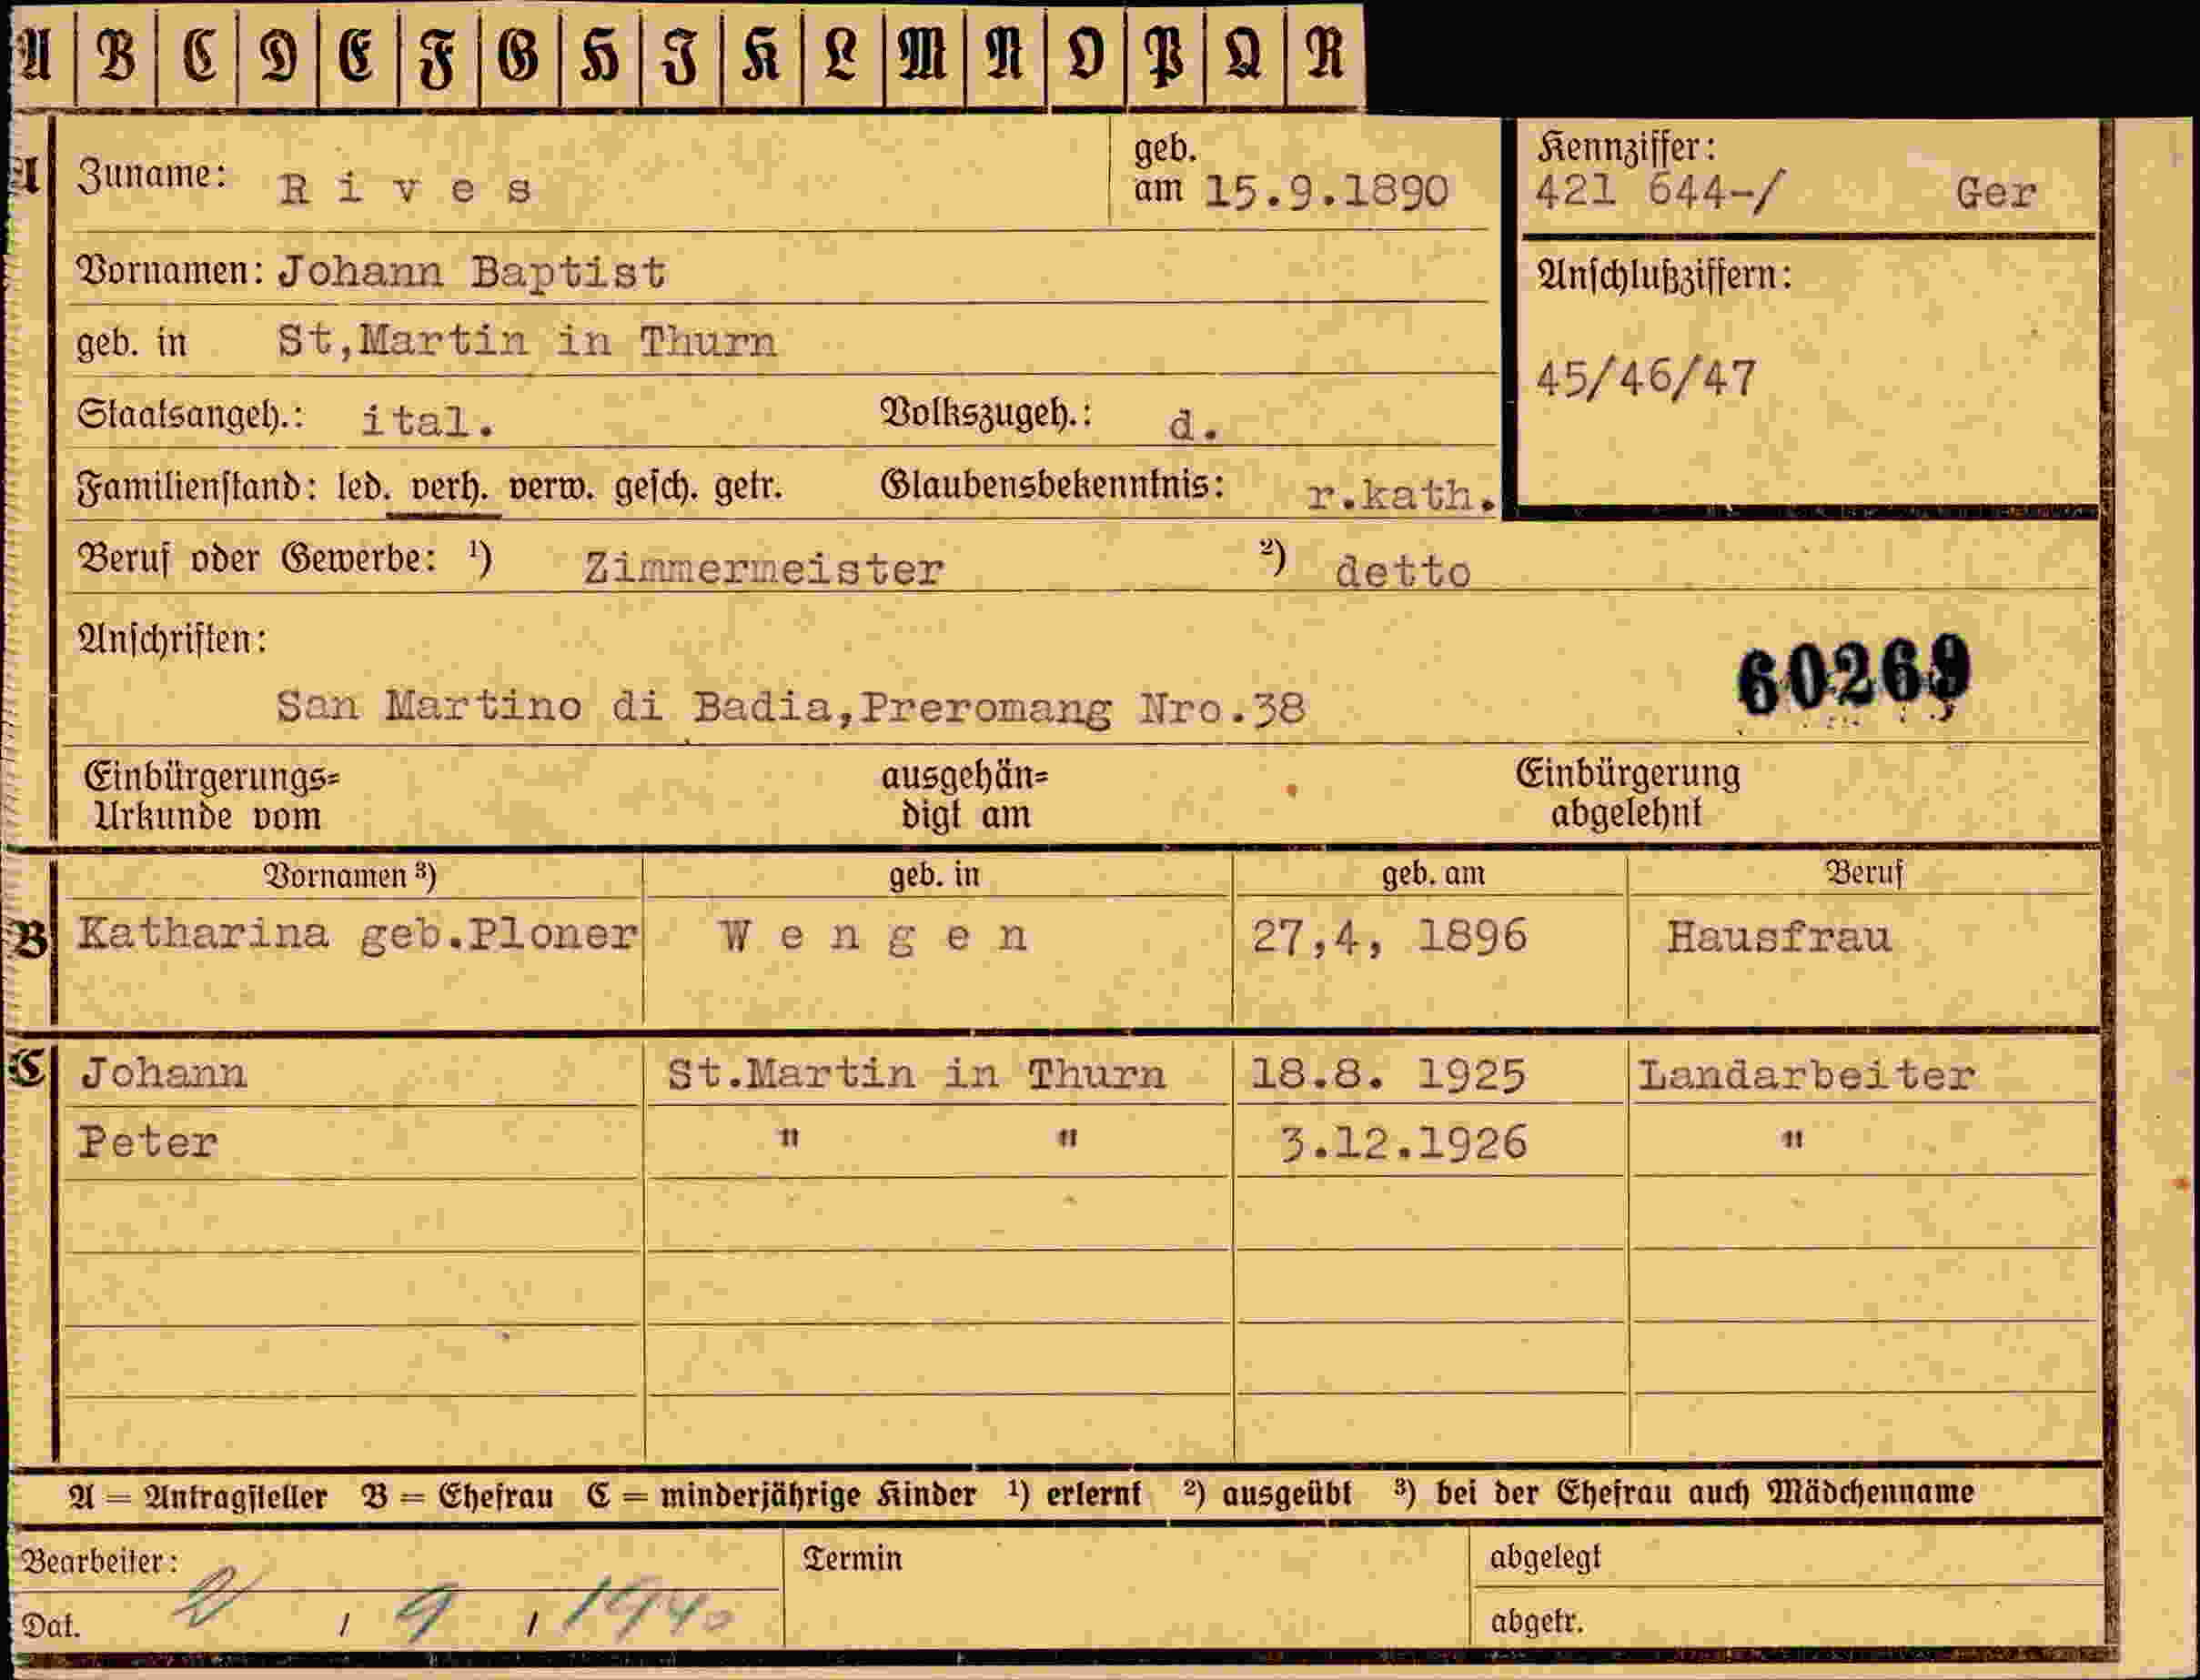 A B C D E F G H I K L M N O P Q R
A Zuname: R i v e s geb. am 15.9.1890
Kennziffer: 421 644-/ Ger
Vornamen: Johann Baptist
Anschlußziffern:
geb. in St,Martin in Thurn
45/46/47
Staatsangeh.: ital. Volkszugeh.: d.
Familienstand: led. verh. verw. gesch. getr. Glaubensbekenntnis: r.kath.
Beruf oder Gewerbe: ¹) Zimmermeister ²) detto
Anschriften:
60269
San Martino di Badia,Preromang Nro.38
Einbürgerungs= ausgehän= Einbürgerung
Urkunde vom digt am abgelehnt
Vornamen ³) geb. in geb. am Beruf
B Katharina geb.Ploner W e n g e n 27,4, 1896 Hausfrau
C Johann St.Martin in Thurn 18.8. 1925 Landarbeiter
Peter " " 3.12.1926 "
A = Antragsteller B = Ehefrau C = minderjährige Kinder ¹) erlernt ²) ausgeübt ³) bei der Ehefrau auch Mädchenname
Bearbeiter: Termin abgelegt
Dat. 2 / 9 / 1940 abgetr.